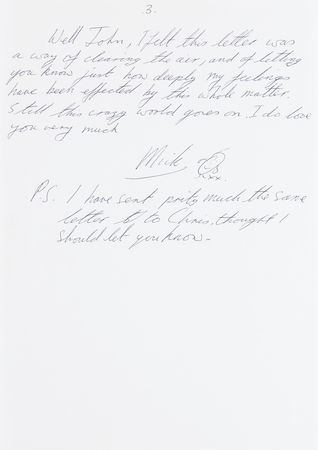 3.
Well John, I felt this letter was
a way of clearing the air, and of letting
you know just how deeply my feelings
have been effected by this whole matter.
Still this crazy world goes on. I do love
you very much
Mick
xxx.
P.S. I have sent prity much the same
letter to Chris, thought I
should let you know.